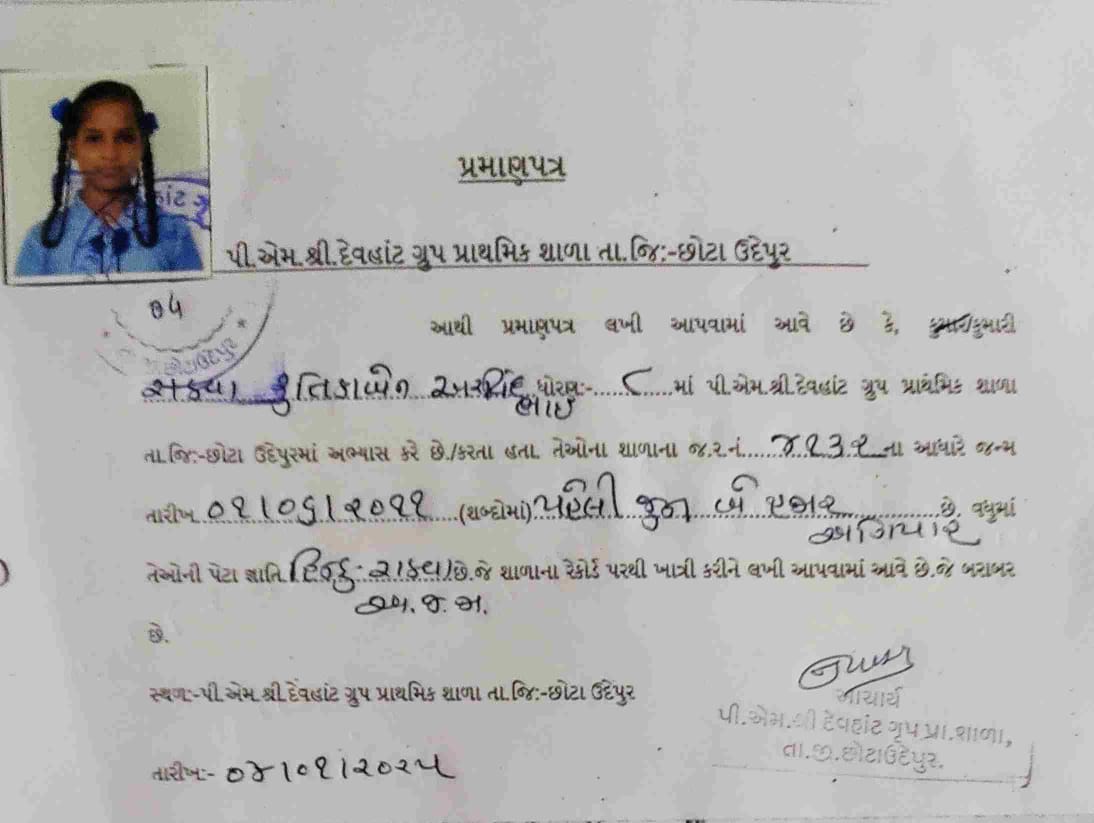 પ્રમાણપત્ર
પી.એમ.શ્રી.દેવહાંટ ગ્રુપ પ્રાથમિક શાળા તા.જિ:-છોટા ઉદેપુર
હાંટ ગૃ
૭૫
છોટાઉદેપુર
આથી પ્રમાણપત્ર લખી આપવામાં આવે છે કે, કુમાર/કુમારી
રાઠવા કૃતિકાબેન અરવિંદભાઈ ધોરણ:-.....૮.....માં પી.એમ.શ્રી.દેવહાંટ ગ્રુપ પ્રાથમિક શાળા
તા.જિ:-છોટા ઉદેપુરમાં અભ્યાસ કરે છે./કરતા હતા. તેઓના શાળાના જ.ર.નં.....૪૧૩૨...ના આધારે જન્મ
તારીખ ૦૧/૦૬/૨૦૧૧ (શબ્દોમાં) પહેલી જુન બે હજાર અગિયાર છે. વધુમાં
તેઓની પેટા જ્ઞાતિ હિન્દુ-રાઠવા છે.જે શાળાના રેકોર્ડ પરથી ખાત્રી કરીને લખી આપવામાં આવે છે.જે બરાબર
અ.જ.જા.
છે.
સ્થળ:-પી.એમ.શ્રી દેવહાંટ ગ્રુપ પ્રાથમિક શાળા તા.જિ:-છોટા ઉદેપુર
તારીખ:- ૦૪/૦૧/૨૦૨૫
આચાર્ય
પી.એમ.શ્રી દેવહાંટ ગૃપ પ્રા.શાળા,
તા.જી.છોટાઉદેપુર.